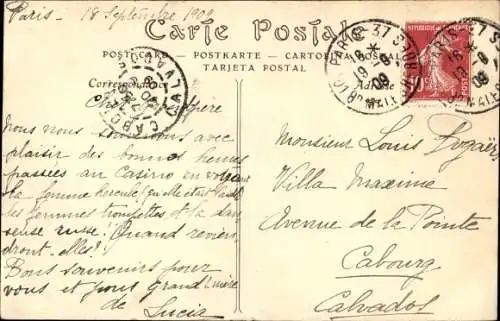 Paris - 18 Septembre 1909
Carte Postale
POST CARD - POSTKARTE - CARTOLINA POSTALE
TARJETA POSTAL
Correspondance
Adresse
Cher
Nous nous souvenons avec
plaisir des bonnes heures
passées au Casino en voyant
la femme hercule! qu'elle était
les femmes troupettes et la dan
seuse russe! Quand revien
dront-elles!
Bons souvenirs pour
vous et pour Grand'mère
de Lucia
PARIS 37
18 - 9
09
CALVADOS
Monsieur Louis
Villa Maxime
Avenue de la Pointe
Cabourg
Calvados